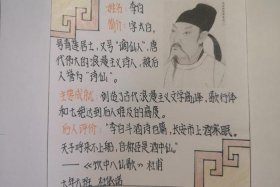 姓名：李白
简介：字太白，
号青莲居士，又号"谪仙人"，唐
代伟大的浪漫主义诗人，被后
人誉为"诗仙"。
主要成就：创造了古代浪漫主义文学高峰，歌行体
和七绝达到后人难及的高度。
后人评价："李白斗酒诗百篇，长安市上酒家眠。
天子呼来不上船，自称臣是酒中仙。"
——《饮中八仙歌》杜甫